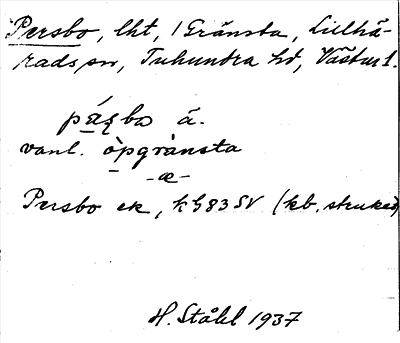 Persbo, lht, i Gränsta, Lillhä-
radssn, Tuhundra hd, Västml.
pá̱ʂbo á.
vanl. ò̱pgrànsta
-æ-
Persbo ek, kG83SV (kb. struket)
H. Ståhl 1937